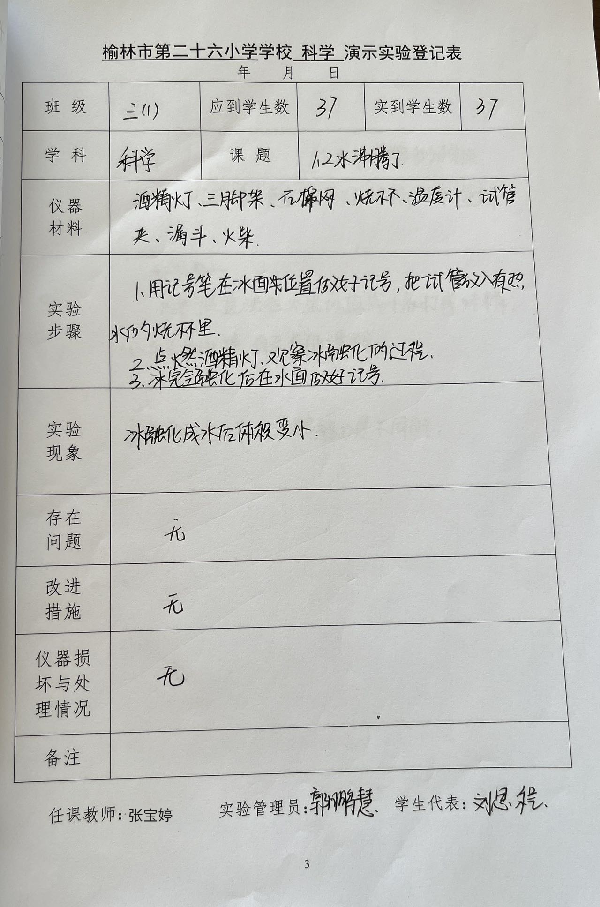 榆林市第二十六小学学校 科学 演示实验登记表
年 月 日
班 级 三(1) 应到学生数 37 实到学生数 37
学 科 科学 课 题 1.2水沸腾了
仪器材料 酒精灯、三脚架、石棉网、烧杯、温度计、试管
夹、漏斗、火柴.
实验步骤 1.用记号笔在冰面末位置做好记号,把试管放入有热
水的烧杯里.
2.点燃酒精灯、观察冰融化的过程.
3.冰完全融化后在水面做好记号.
实验现象 冰融化成水后体积变小.
存在问题 无
改进措施 无
仪器损坏与处理情况 无
备注
任课教师:张宝婷 实验管理员: 学生代表:刘思程.
3